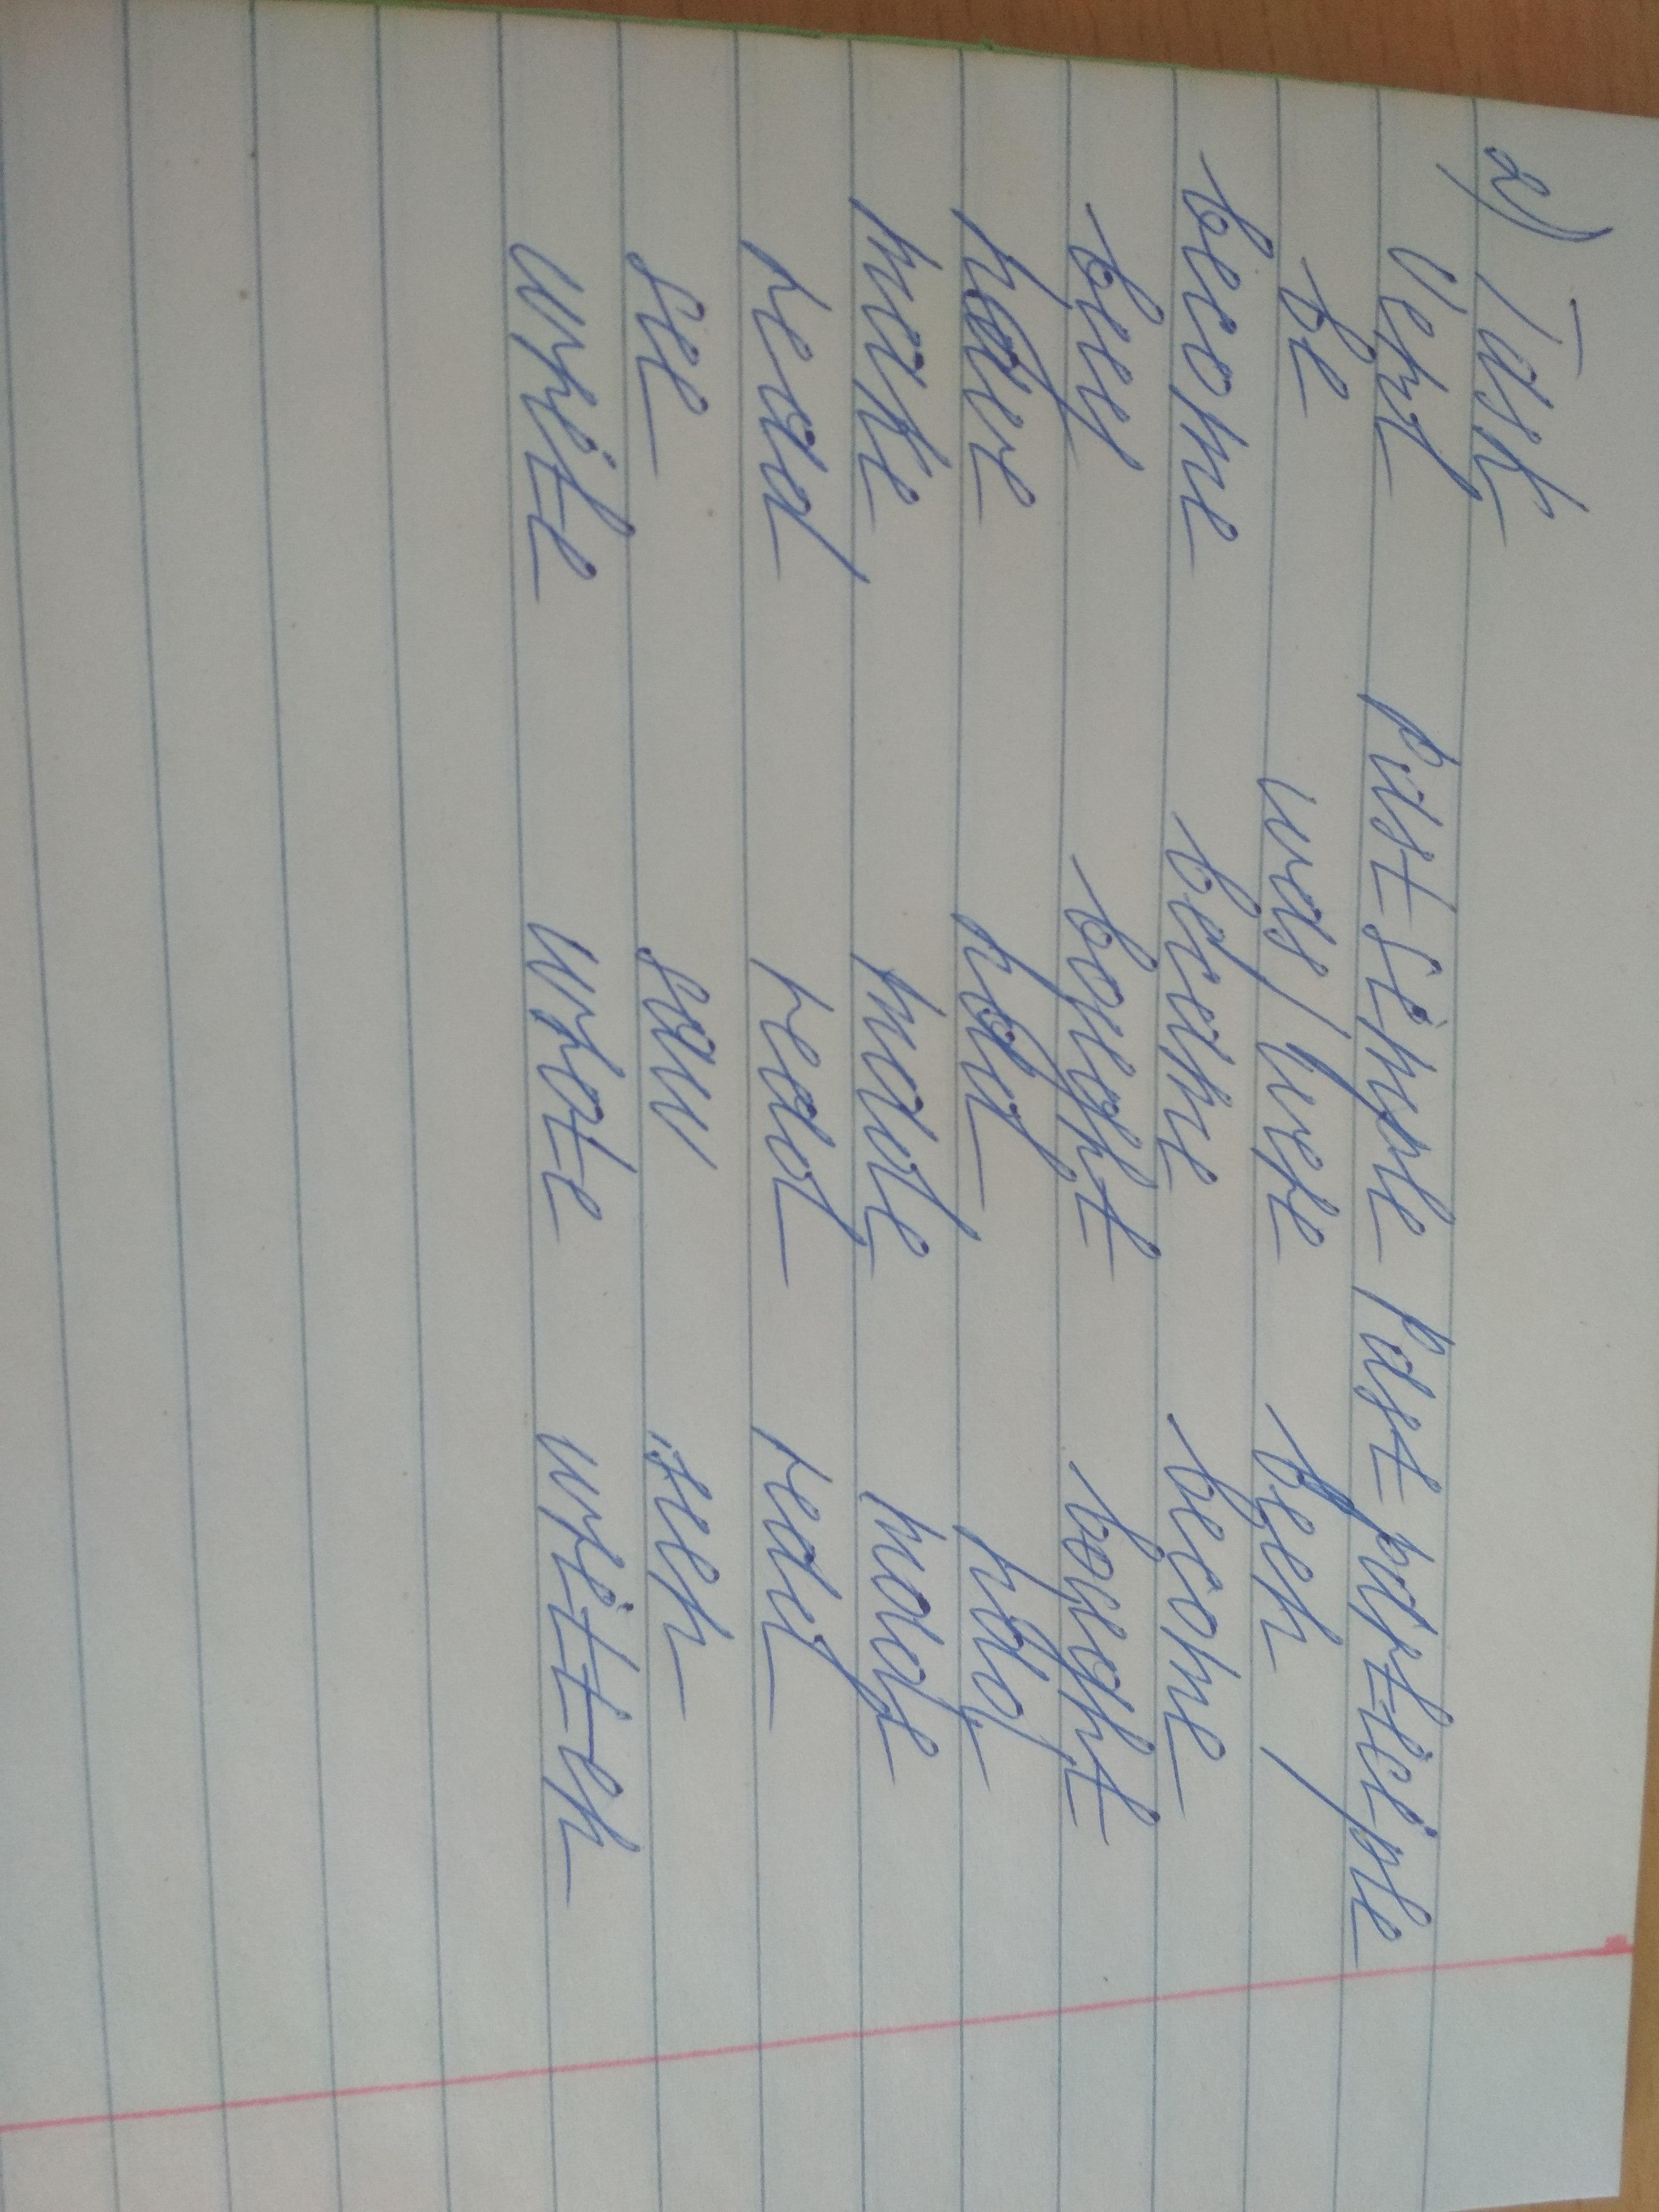 2) Task
Verb Past Simple Past participle
be was/were been
become became become
buy bought bought
have had had
make made made
read read read
see saw seen
write wrote written